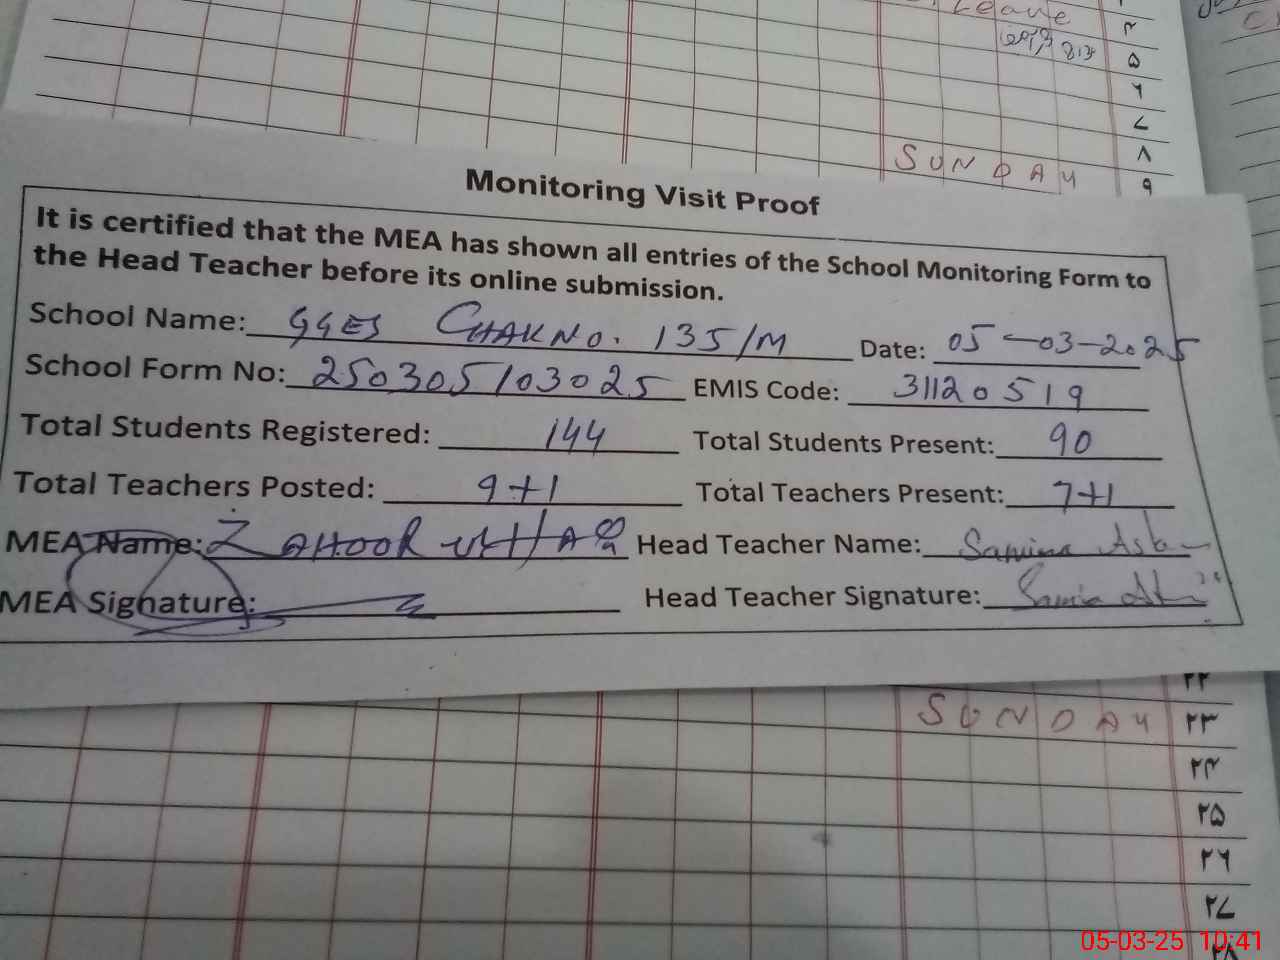 Leave
۴
۵
۶
۷
۸
SUNDAY ۹
Monitoring Visit Proof
It is certified that the MEA has shown all entries of the School Monitoring Form to
the Head Teacher before its online submission.
School Name: GGES CHAK NO. 135/M Date: 05-03-2025
School Form No: 250305103025 EMIS Code: 31120519
Total Students Registered: 144 Total Students Present: 90
Total Teachers Posted: 9+1 Total Teachers Present: 7+1
MEA Name: ZAHOOR UL HAQ Head Teacher Name: Samina
MEA Signature: Head Teacher Signature:
۲۲
SUNDAY ۲۳
۲۴
۲۵
۲۶
۲۷
۲۸
05-03-25 10:41